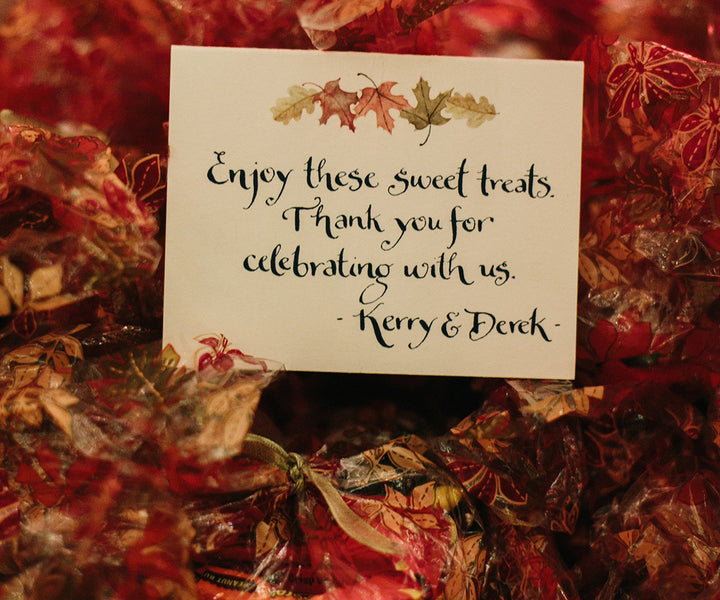 Enjoy these sweet treats.
Thank you for
celebrating with us.
- Kerry & Derek -